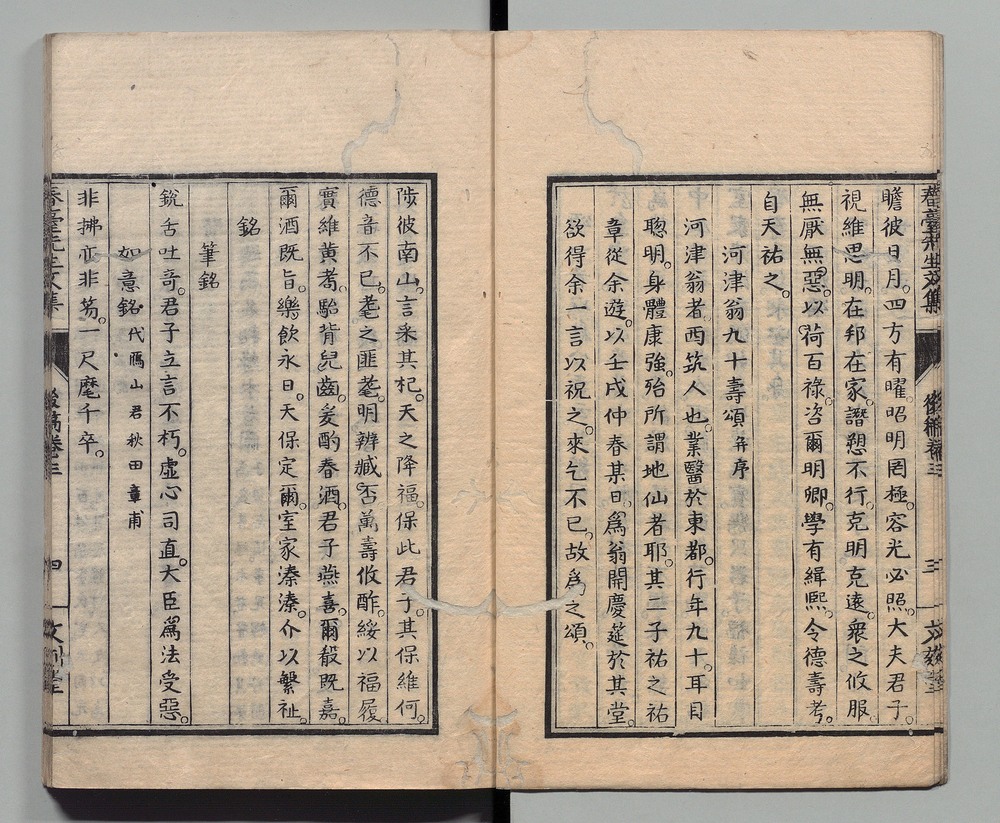 瞻彼日月。四方有曜。昭明罔極。容光必照。大夫君子。
視維思明。在邦在家。譖愬不行。克明克遠。衆之攸服。
無厭無惡。以荷百祿。咨爾明卿。學有緝熙。令德壽考。
自天祐之。
河津翁九十壽頌并序
河津翁者。西筑人也。業醫於東都。行年九十。耳目
聰明。身體康強。殆所謂地仙者耶。其二子祐之祐
章從余遊。以壬戌仲春某日。爲翁開慶莚於其堂。
欲得余一言以祝之。來乞不已。故爲之頌。
陟彼南山。言采其杞。天之降福。保此君子。其保維何。
德音不已。耄之匪耄。明辨臧否。萬壽攸酢。綏以福履。
實維黃耇。駘背兒齒。爰酌春酒。君子燕喜。爾殽既嘉。
爾酒既旨。樂飲永日。天保定爾。室家溱溱。介以繁祉。
銘
筆銘
銳舌吐奇。君子立言不朽。虛心司直。大臣爲法受惡。
如意銘代鴈山君秋田章甫
非拂亦非笏。一尺麾千卒。
春臺先生文集
後稿卷三
四